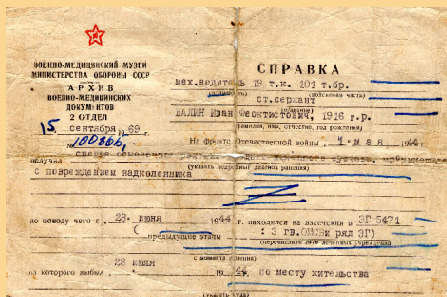 ВОЕННО-МЕДИЦИНСКИЙ МУЗЕЙ
МИНИСТЕРСТВА ОБОРОНЫ СССР
АРХИВ
ВОЕННО-МЕДИЦИНСКИХ
ДОКУМЕНТОВ
2 ОТДЕЛ
15 сентября 69 г.
СПРАВКА
мех.водитель 19 т.к. 101 т.бр.
(войсковая часть)
ст.сержант
(звание)
Иван Феоктистович, 1916 г.р.
(фамилия, имя, отчество, год рождения)
На фронте Отечественной войны 4 мая 1944
получил
(указать подробный диагноз ранения)
с повреждением надколенника
по поводу чего с 23 июня 1944 г. находится на излечении в ЭГ 5471
(предыдущие этапы
ряд ЭГ)
(перечислить этапы лечебных учреждений)
28 июля
с момента ранения)
из которого выбыл 19 по месту жительства
(указать куда)